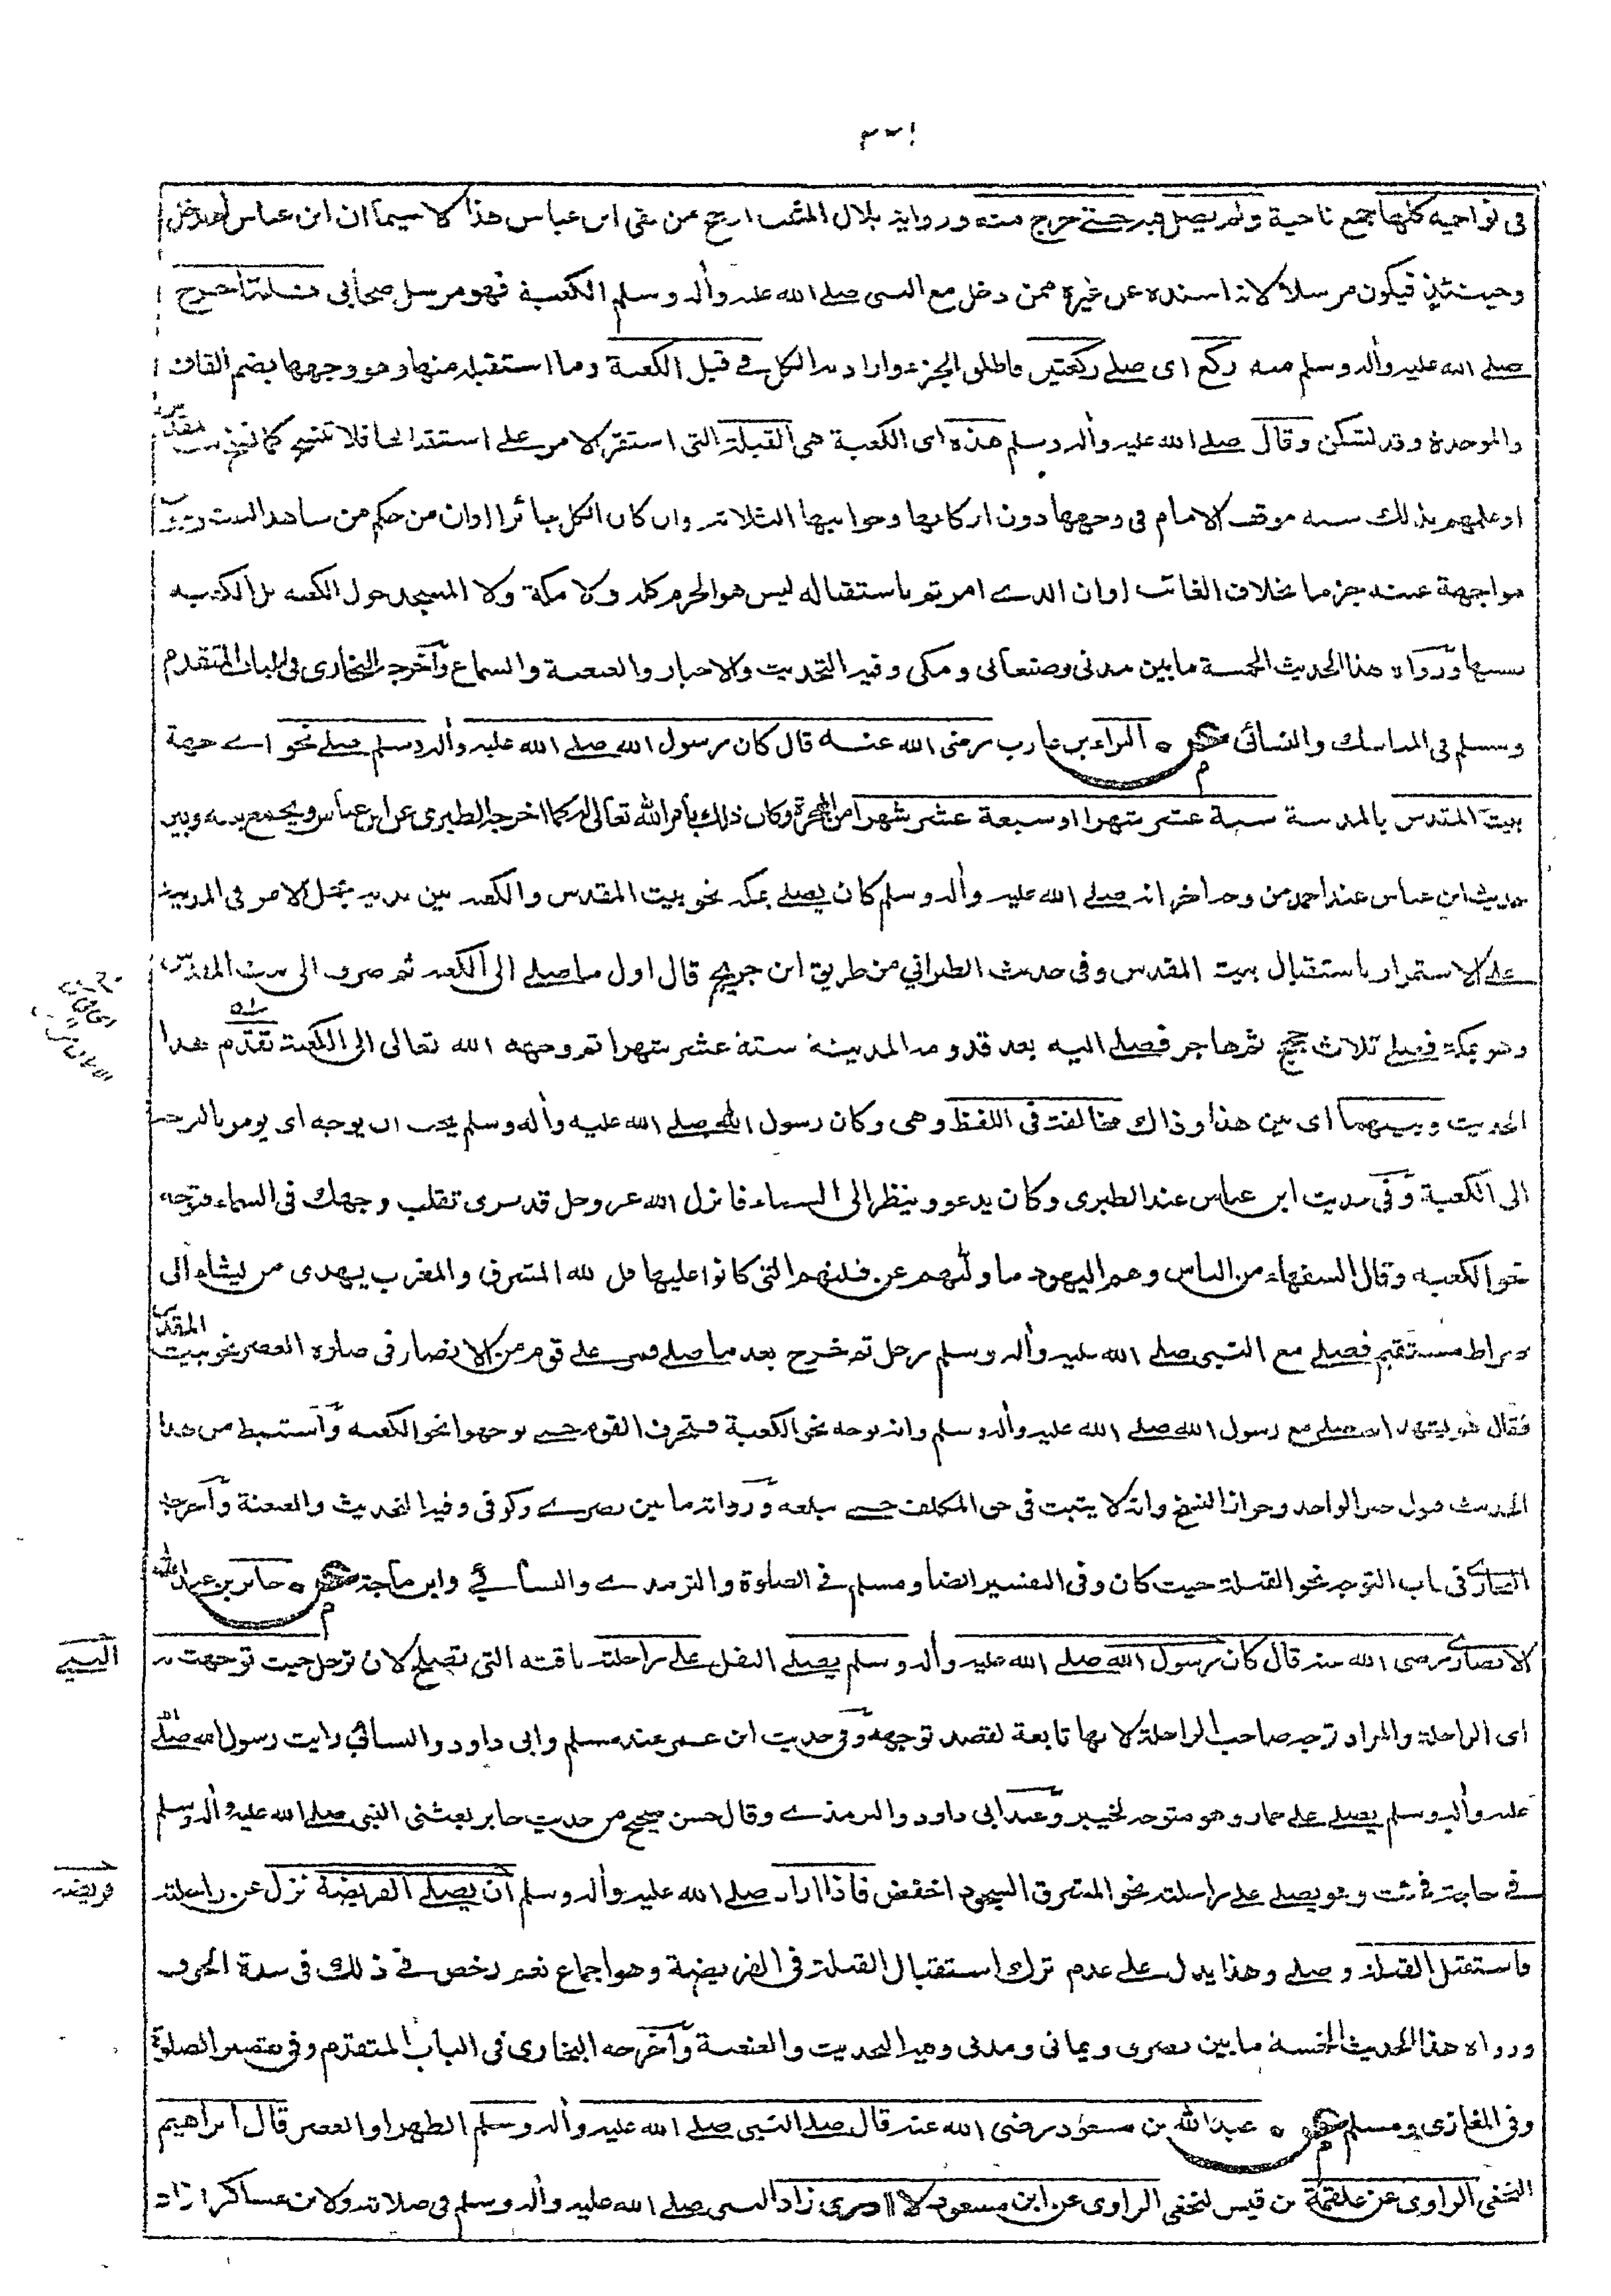 في نواحيه كلها جمع ناحية ولم يصل فيه حتى خرج منه ورواية بلال المثبت ارجح من نفى ابن عباس هذا لا سيما ان ابن عباس لم يدخل
وحينئذ فيكون مرسلا لانه اسنده عن غيره ممن دخل مع النبى صلى الله عليه وأله وسلم الكعبة فهو مرسل صحابى فلما خرج
صلى الله عليه وأله وسلم منه ركع اى صلى ركعتين فاطلق الجزء واراد به الكل فى قبل الكعبة وما استقبله منها وهو وجهها بضم القاف
والموحدة وقد تسكن وقال صلى الله عليه وأله وسلم هذه اى الكعبة هى القبلة التى استقر الامر على استقبالها فلا تنسخ كما نسخ بيت المقدس
او علمهم بذلك سنة موقف الامام فى وجهها دون اركانها وجوانبها الثلاثة وان كان الكل جائزا اوان من حكم من شاهد البيت وجوب
مواجهة عينه جزما بخلاف الغائب اوان الذى امرتم باستقباله ليس هو الحرم كله ولا مكة ولا المسجد حول الكعبة بل الكعبة
نفسها ورواة هذا الحديث الخمسة ما بين مدنى وصنعانى ومكى وفيه التحديث والاخبار والعنعنة والسماع وأخرجه البخارى فى الباب المتقدم
ومسلم فى المناسك والنسائى عن البراء بن عازب رضى الله عنه قال كان رسول الله صلى الله عليه وأله وسلم صلى نحو اى جهة
بيت المقدس بالمدينة ستة عشر شهرا او سبعة عشر شهرا من الهجرة وكان ذلك بأمر الله تعالى له كما اخرجه الطبرى عن ابن عباس ويجمع بينه وبين
حديث ابن عباس عند احمد من وجه اخر انه صلى الله عليه وأله وسلم كان يصلى بمكة نحو بيت المقدس والكعبة بين يديه بحمل الامر فى المدينة
على الاستمرار باستقبال بيت المقدس وفى حديث الطبرانى من طريق ابن جريج قال اول ما صلى الى الكعبة ثم صرف الى بيت المقدس
وهو بمكة فصلى ثلاث حجج ثم هاجر فصلى اليه بعد قدومه المدينة ستة عشر شهرا ثم وجهه الله تعالى الى الكعبة تقدم هذا
الحديث وبينهما اى بين هذا وذاك مخالفة فى اللفظ وهى وكان رسول الله صلى الله عليه وأله وسلم يحب ان يوجه اى يومر بالتوجه
الى الكعبة وفى حديث ابن عباس عند الطبرى وكان يدعو وينظر الى السماء فانزل الله عز وجل قد نرى تقلب وجهك فى السماء فتوجه
نحو الكعبة وقال السفهاء من الناس وهم اليهود ما ولٰهم عن قبلتهم التى كانوا عليها قل لله المشرق والمغرب يهدى من يشاء الى
صراط مستقيم فصلى مع النبى صلى الله عليه وأله وسلم رجل ثم خرج بعد ما صلى فمر على قوم من الانصار فى صلاة العصر نحو بيت المقدس
فقال هو يشهد انه صلى مع رسول الله صلى الله عليه وأله وسلم وانه توجه نحو الكعبة فتحرف القوم حتى توجهوا نحو الكعبة وأستنبط من هذا
الحديث قبول خبر الواحد وجواز النسخ وانه لا يثبت فى حق المكلف حتى يبلغه ورواته ما بين بصرى وكوفى وفيه التحديث والعنعنة وأخرجه
البخارى فى باب التوجه نحو القبلة حيث كان وفى التفسير ايضا ومسلم فى الصلوة والترمذى والنسائى وابن ماجة عن جابر بن عبد الله
الانصارى رضى الله عنه قال كان رسول الله صلى الله عليه وأله وسلم يصلى النفل على راحلته ناقته التى تصلح لان ترحل حيث توجهت به
النبى
اى الراحلة والمراد توجه صاحب الراحلة لانها تابعة لقصد توجهه وفى حديث ابن عمر عند مسلم وابى داود والنسائى رايت رسول الله صلى الله
عليه وأله وسلم يصلى على حمار وهو متوجه لخيبر وعند ابى داود والترمذى وقال حسن صحيح من حديث جابر بعثنى النبى صلى الله عليه وأله وسلم
فى حاجة فجئت وهو يصلى على راحلته نحو المشرق السجود اخفض فاذا اراد صلى الله عليه وأله وسلم أن يصلى الفريضة نزل عن راحلته
فريضة
فاستقبل القبلة وصلى وهذا يدل على عدم ترك استقبال القبلة فى الفريضة وهو اجماع نعم رخص فى ذلك فى شدة الخوف
ورواة هذا الحديث الخمسة ما بين بصرى ويمانى ومدنى وفيه التحديث والعنعنة وأخرجه البخارى فى الباب المتقدم وفى تقصير الصلوة
وفى المغازى ومسلم عن عبد الله بن مسعود رضى الله عنه قال صلى النبى صلى الله عليه وأله وسلم الظهر او العصر قال ابراهيم
النخعى الراوى عن علقمة بن قيس النخعى الراوى عن ابن مسعود لا ادرى زاد النبى صلى الله عليه وأله وسلم فى صلاته ولابن عساكر ازاد